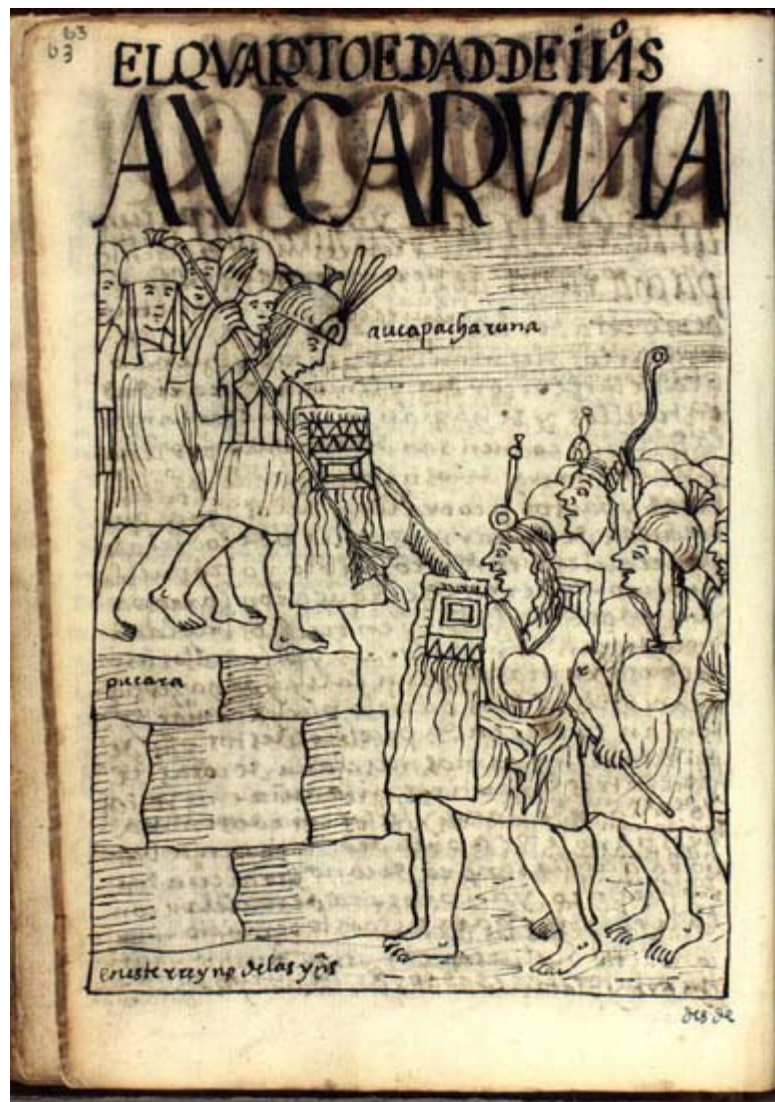 63
63
EL QVARTO EDAD DE INoS
AVCA RVNA
aucapacha runa
pucara
en este rreyno de las yns
des de